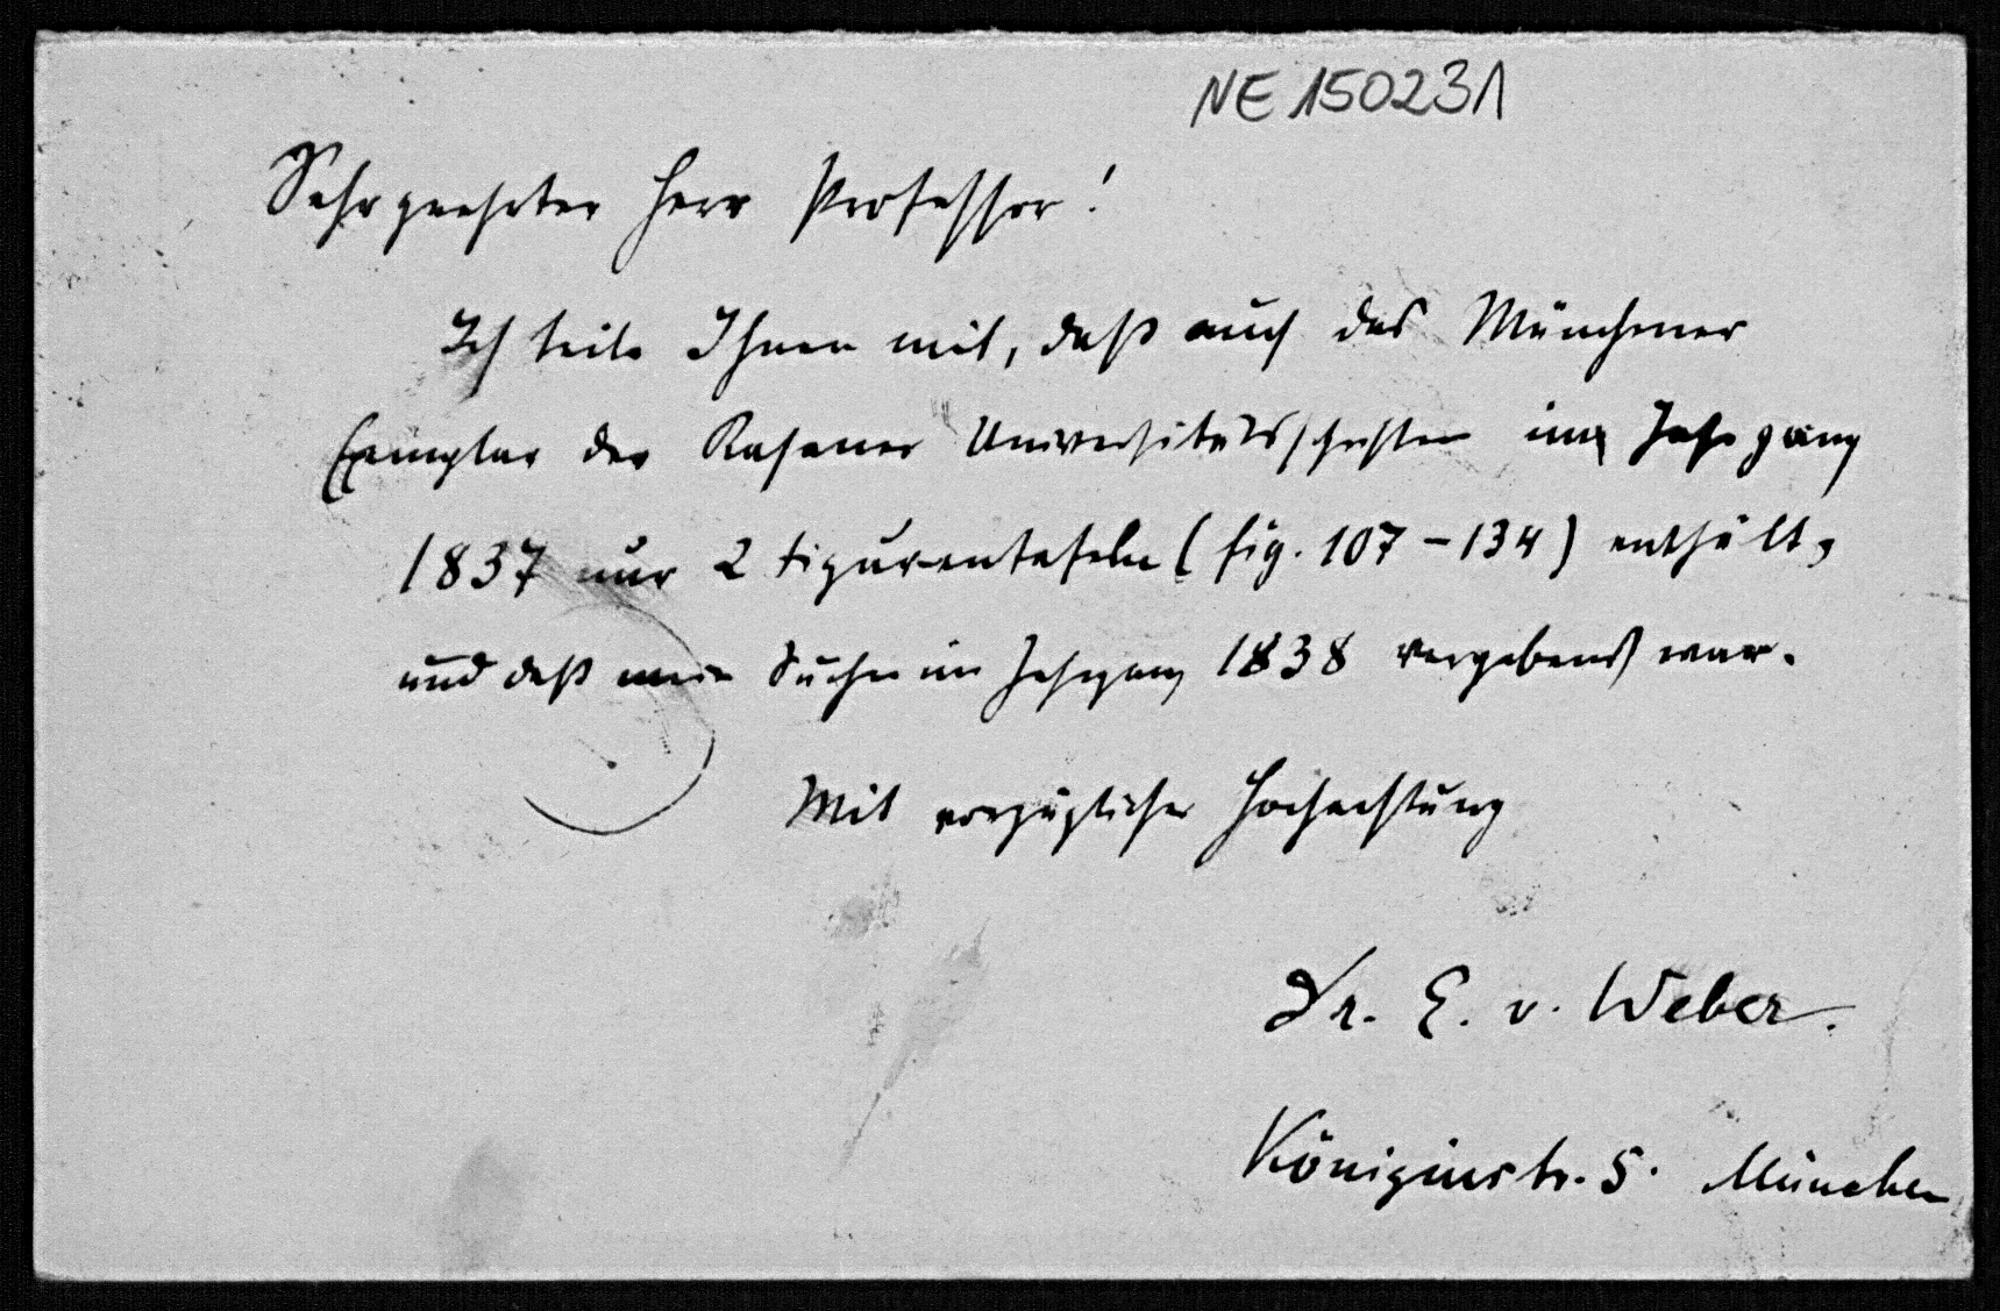 NE 150231
Sehr geehrter Herr Professor!
Ich teile Ihnen mit, daß auch das Münchener
Exemplar der Kasaner Universitätsschriften im Jahrgang
1837 nur 2 Figurentafeln (fig. 107 – 134) enthält,
und daß mein Suchen im Jahrgang 1838 vergebens war.
Mit vorzüglicher Hochachtung
Dr. E. v. Weber.
Königinstr. 5. München